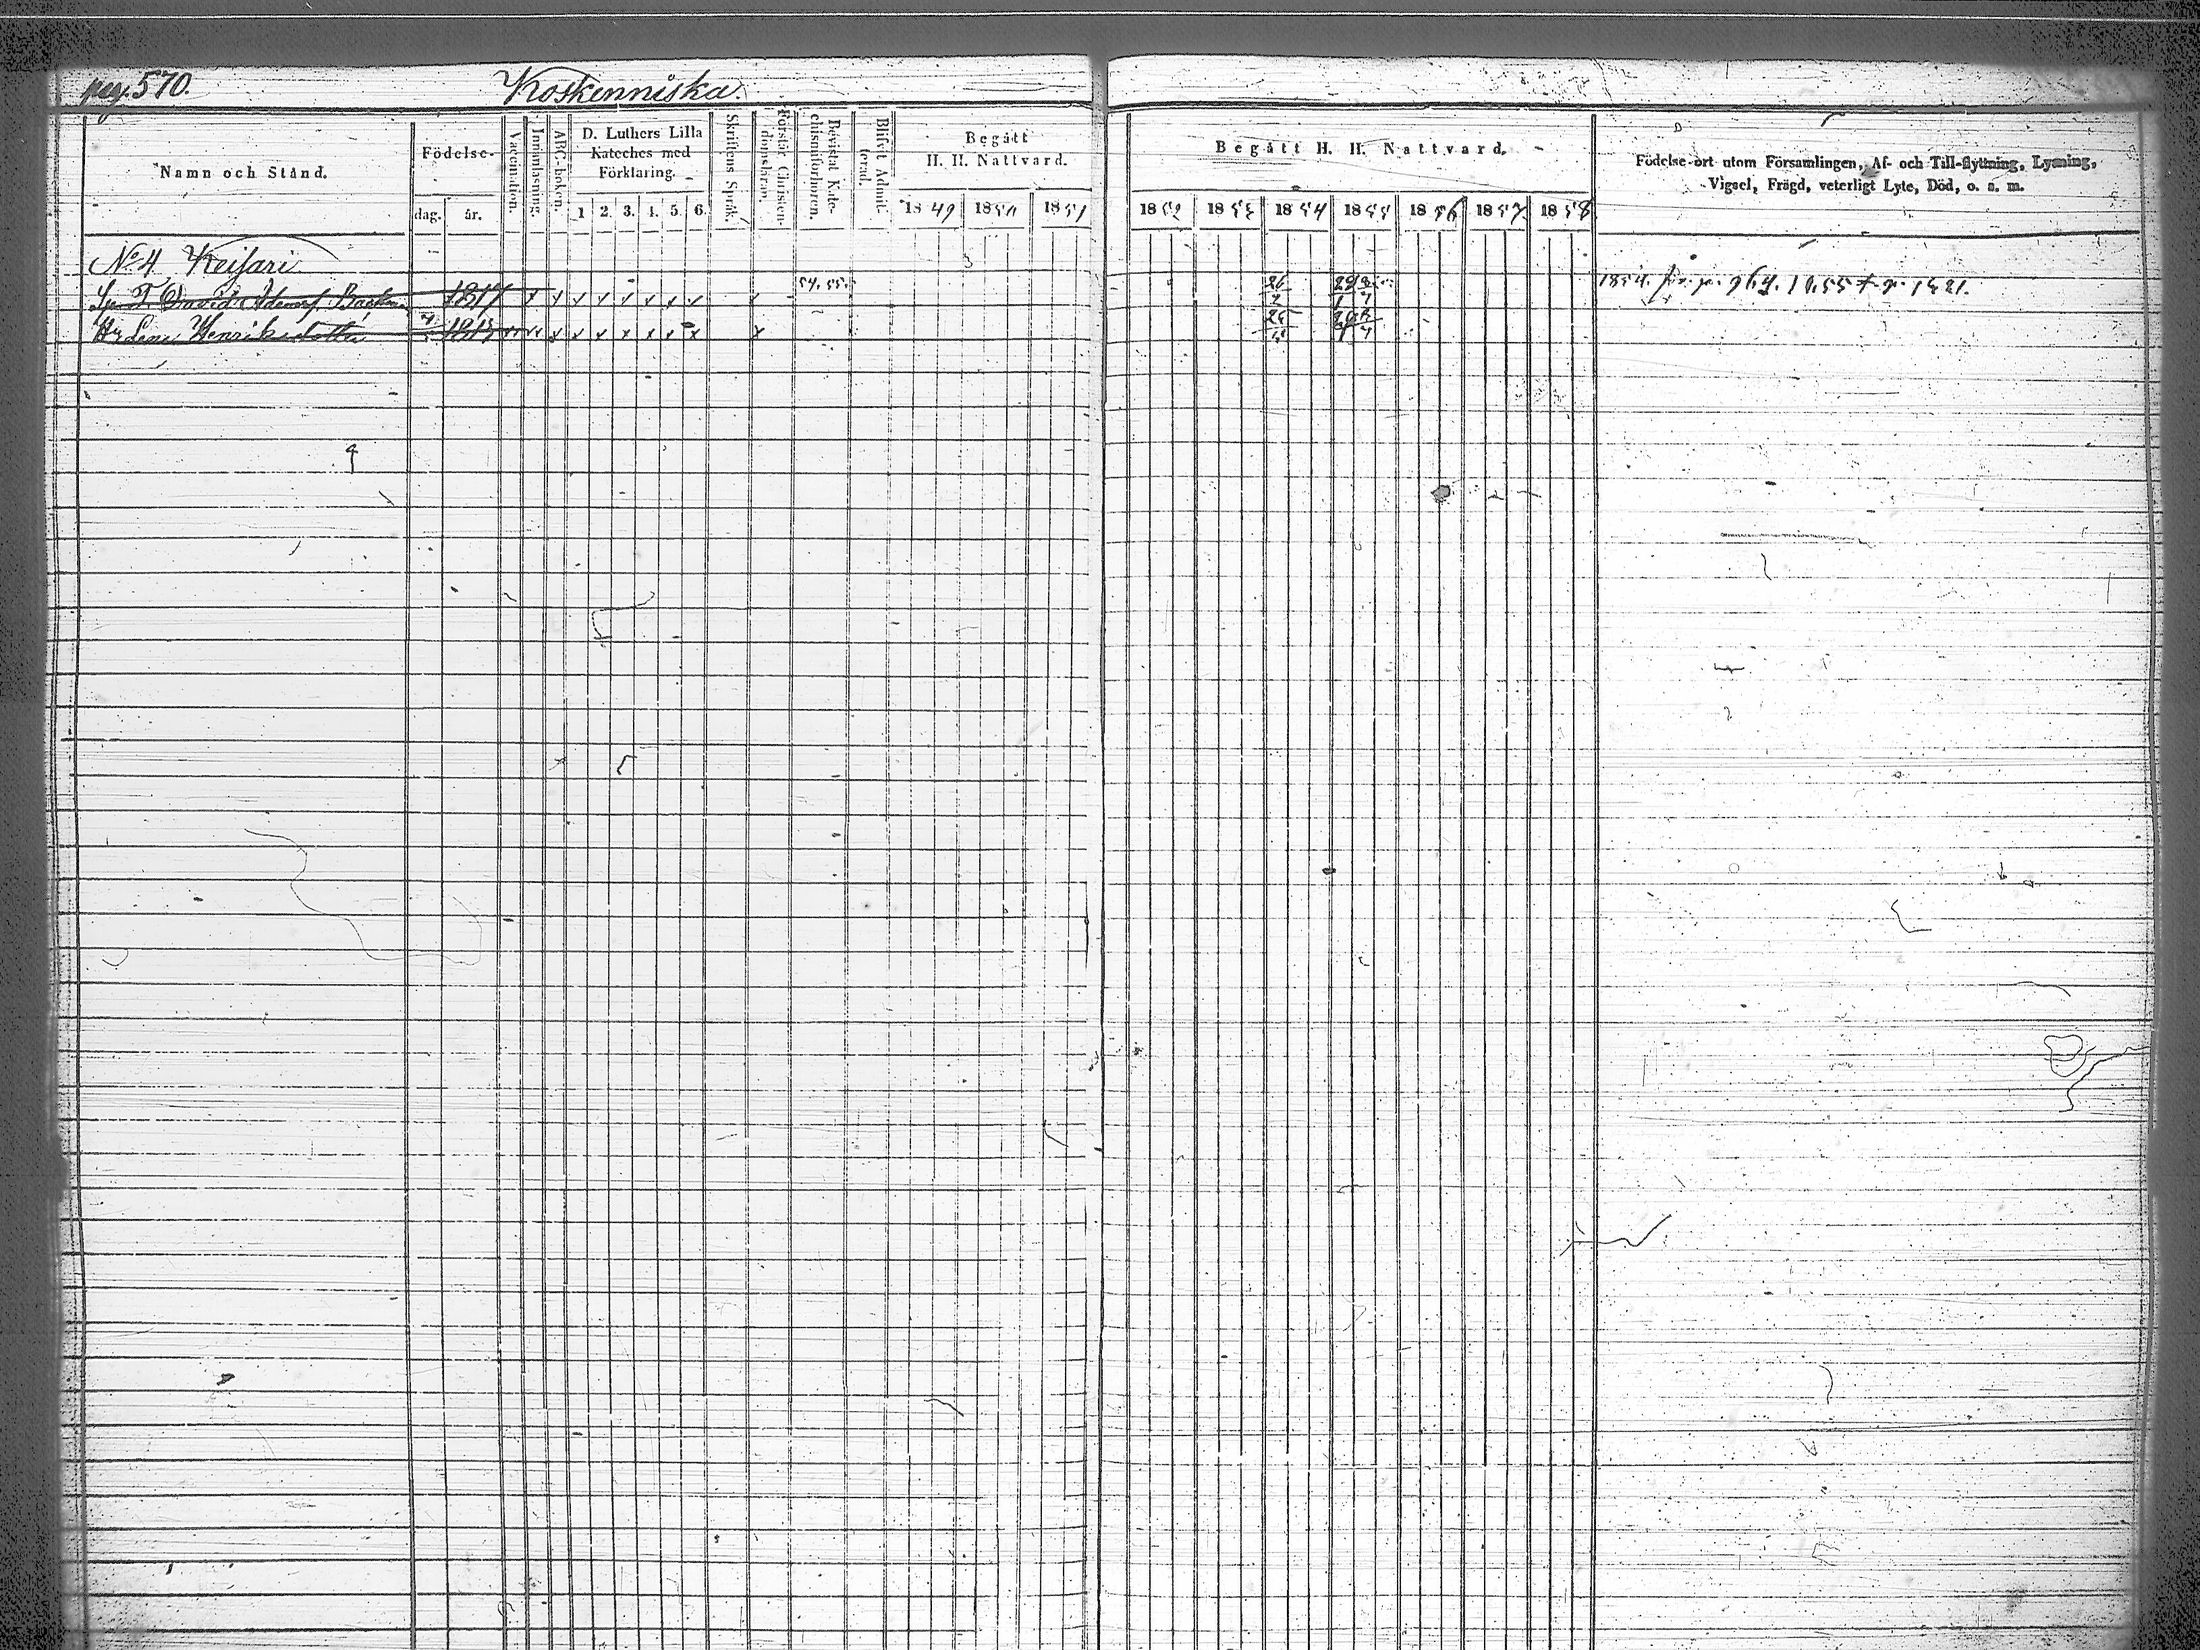 pag. 570.
Koskenniska.
Namn och Stånd.
Födelse-
dag.
år.
Vaccination.
Innanläsning.
ABC-boken.
D. Luthers Lilla
Kateches med
Förklaring.
1 2. 3. 4. 5. 6.
Skriftens Språk.
Förstår Christen-
domsläran.
Bevistat Kate-
chismiförhören.
Blifvit Admit-
terad.
Begått
H. H. Nattvard.
1849 1850 1851
Begått H. H. Nattvard.
1852 1853 1854 1855 1856 1857 1858
Födelse-ort utom Församlingen, Af- och Till-flyttning, Lysning,
Vigsel, Frägd, veterligt Lyte, Död, o. s. m.
No 4 Keisari
David Adamsf. 1817 x x x x x x x x x 54. 55.
Lena Henriksdotter 1813 x x x x x x x x x